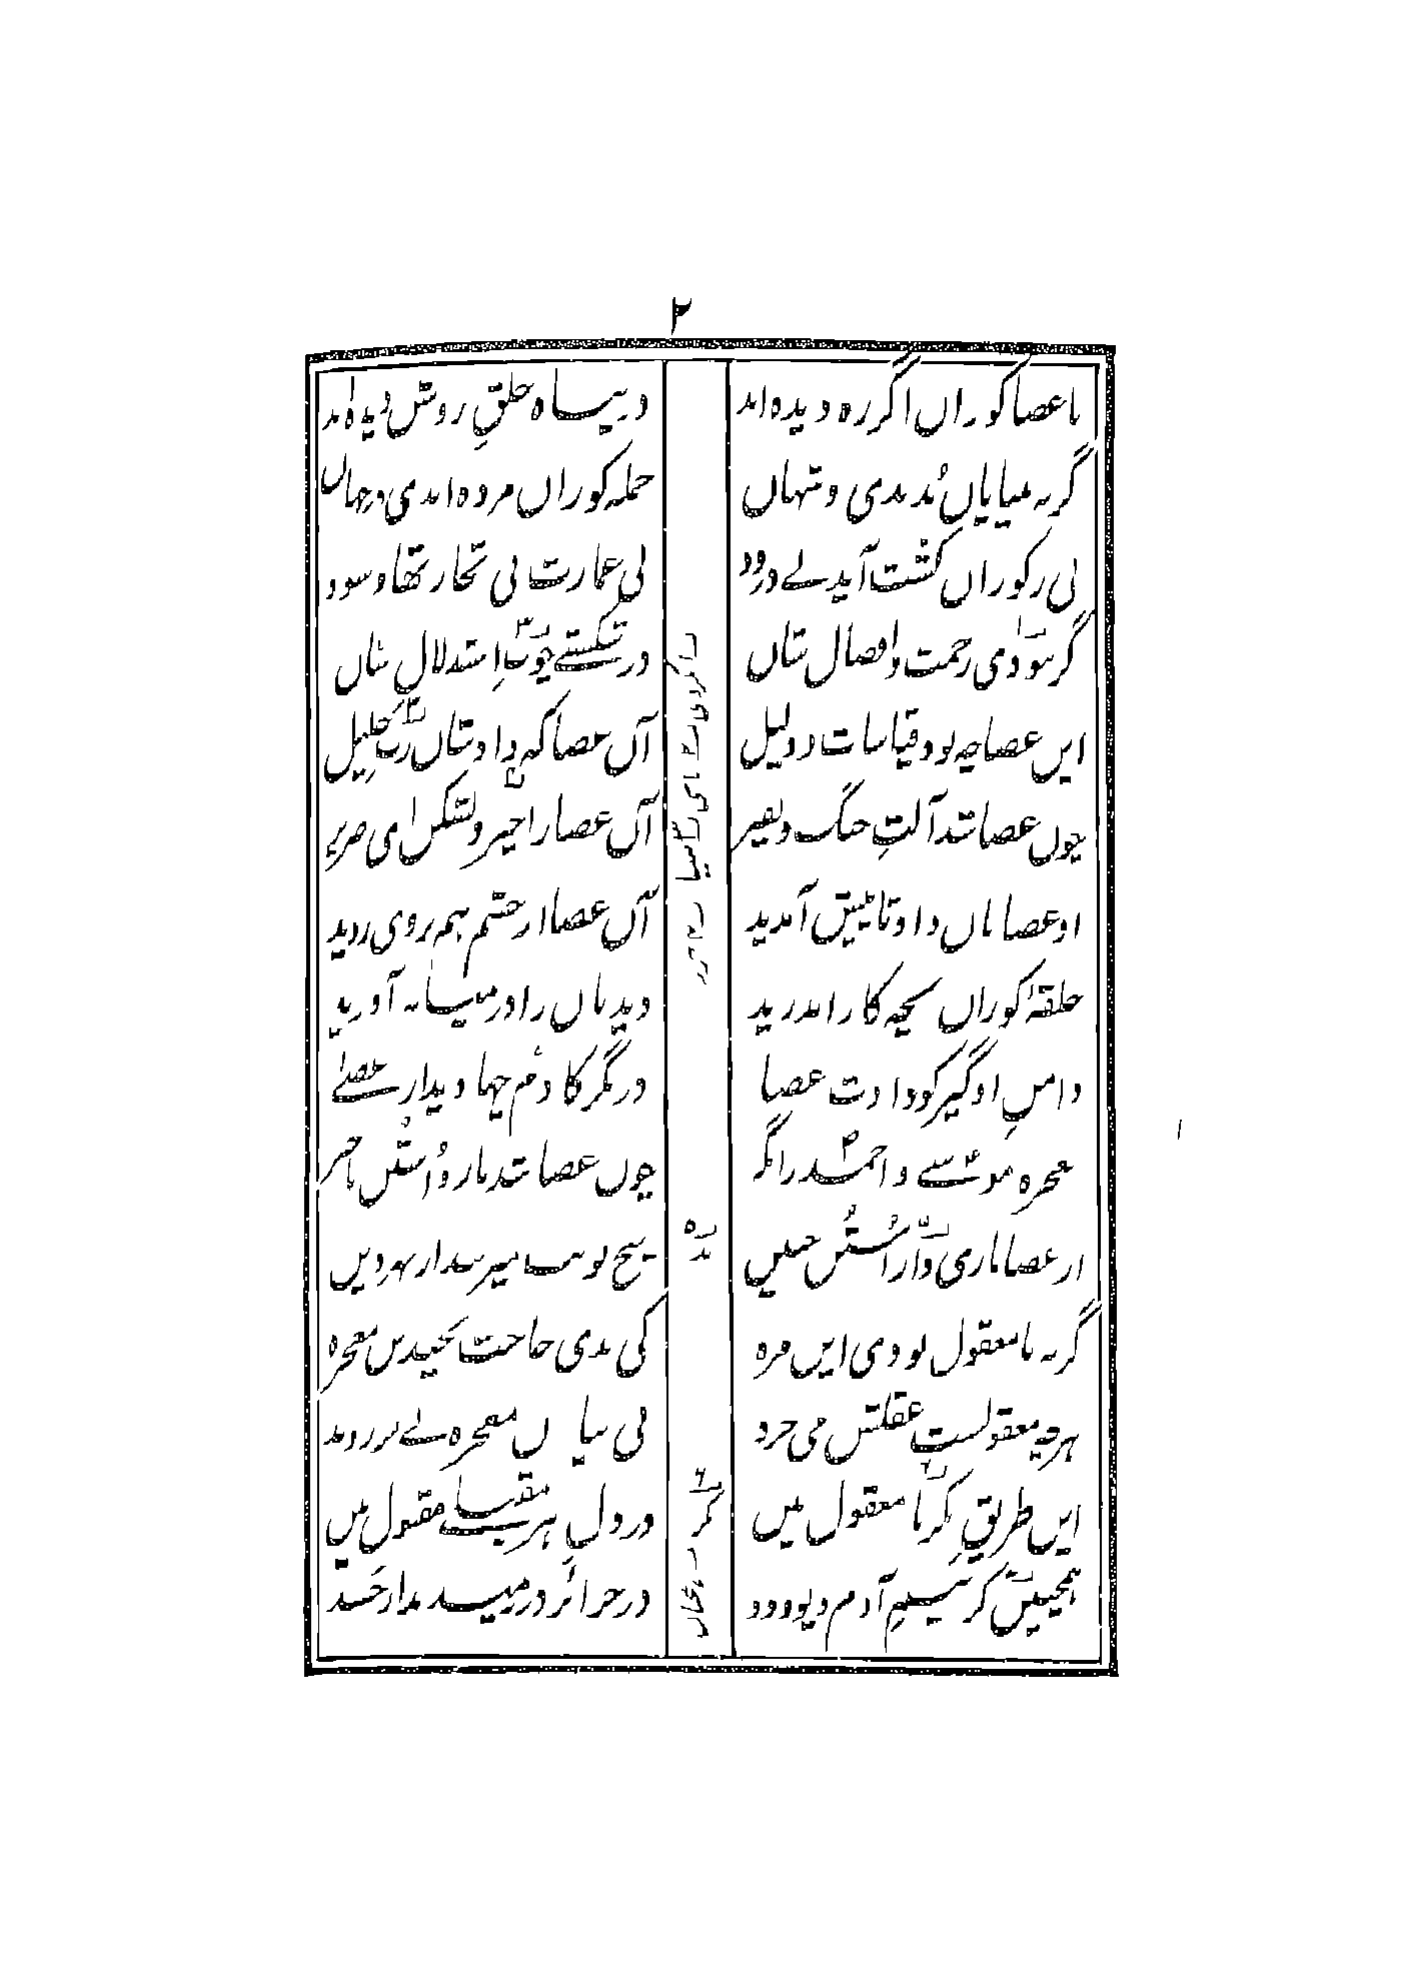 ۲
با عصا کوران اگر ره دیده‌اند
در پناه خلقِ روشن دیده‌اند
گر نه بینایان بُدندی و شهان
جمله کوران مرده‌اندی در جهان
نی ز کوران کشت آید نے درود
نی عمارت نی تجارتها و سود
گر نبودی رحمت و افضال شان
در شکستے چوبِ استدلالِ شان
این عصا چه بود قیاسات و دلیل
آن عصا که داد شان ربِ جلیل
چون عصا شد آلتِ جنگ و نفیر
آن عصا را خرد بشکن ای ضریر
او عصا تان داد تا پیش آمدید
آن عصا از خشم هم بروی زدید
حلقهٔ کوران بچه کار اندرید
دیدبان را در میانه آورید
دامنِ او گیر کو دادت عصا
درنگر کآدم چها دید از عصےٰ
معجزهٔ موسےٰ و احمد را نگر
چون عصا شد مار و اُستُن با خبر
از عصا ماری و از اُستُن حنین
پنج نوبت میزنند از بهر دین
گر نه نامعقول بودی این مزه
کی بدی حاجت بچندین معجزه
هرچه معقولست عقلش می‌خرد
بی بیان معجزه بے جزر و مد
این طریقِ بکر نامعقول بین
در دل هر مقبلے مقبول بین
همچنین کز بیمِ آدم دیو و دد
در جزائر در رمیدند از حسد